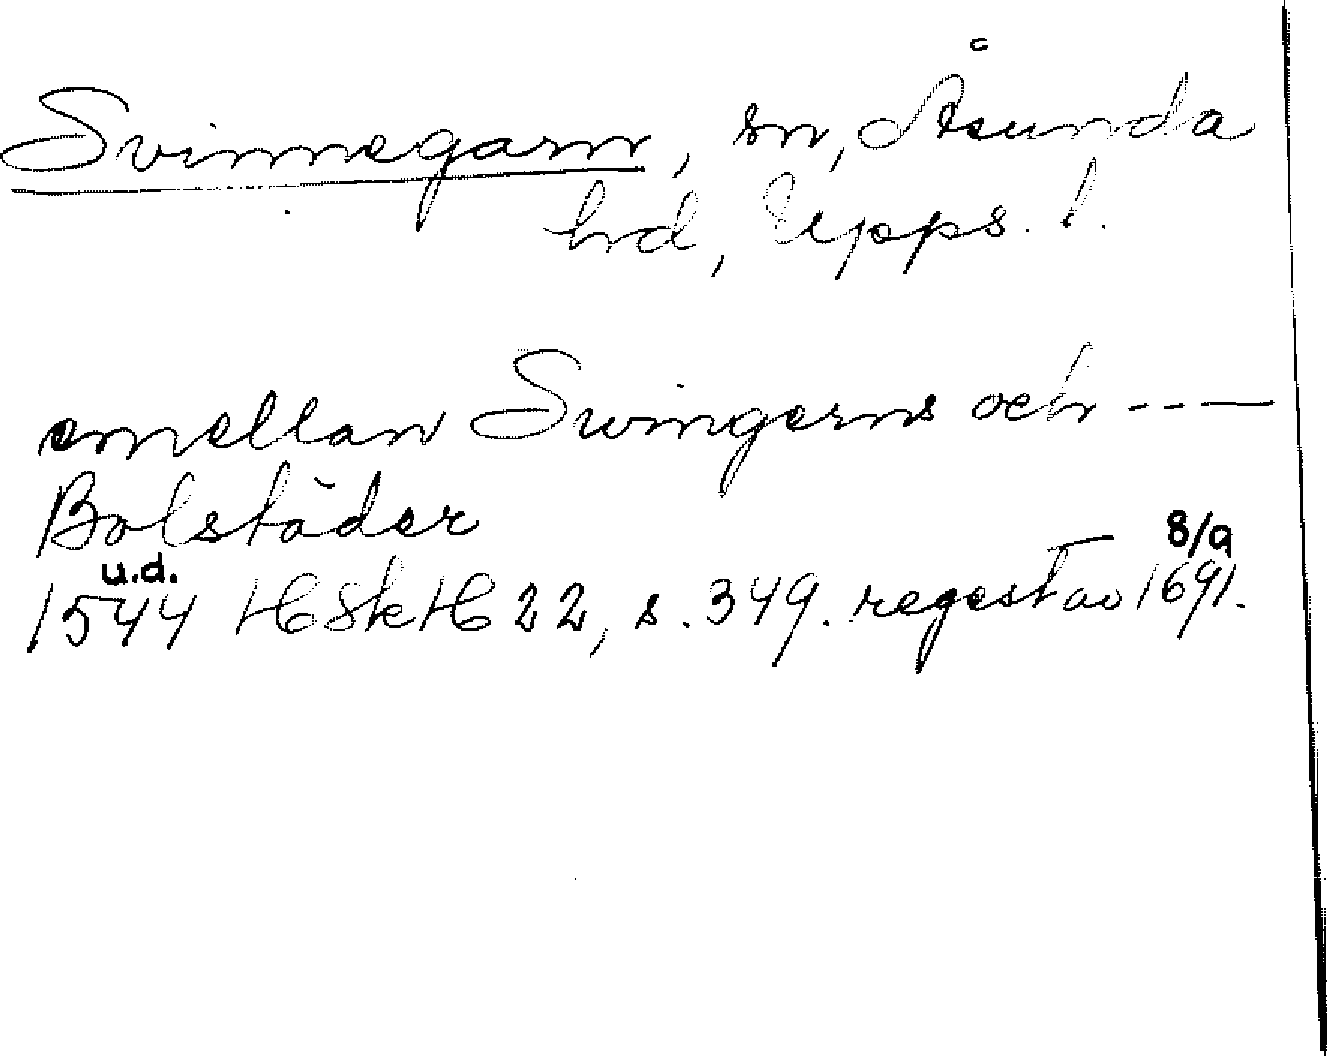 Svinnegarn, sn, Åsunda
hrd, Upps. l.
emellan Swingerns och ---
Bolstäder
u.d. 8/9
1544 HSkH 22, s. 349. regest av 1691.